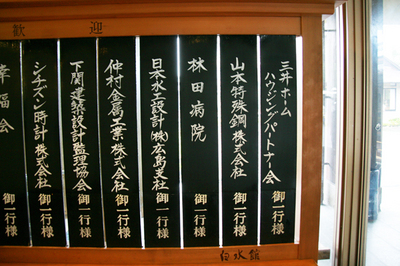 歓迎
三井ホーム
ハウジングパートナー会 御一行様
山本特殊鋼株式会社 御一行様
林田病院 御一行様
日本水工設計(株)広島支社 御一行様
仲村金属工業株式会社 御一行様
下関建築設計監理協会 御一行様
シチズン時計株式会社 御一行様
幸福会 御一行様